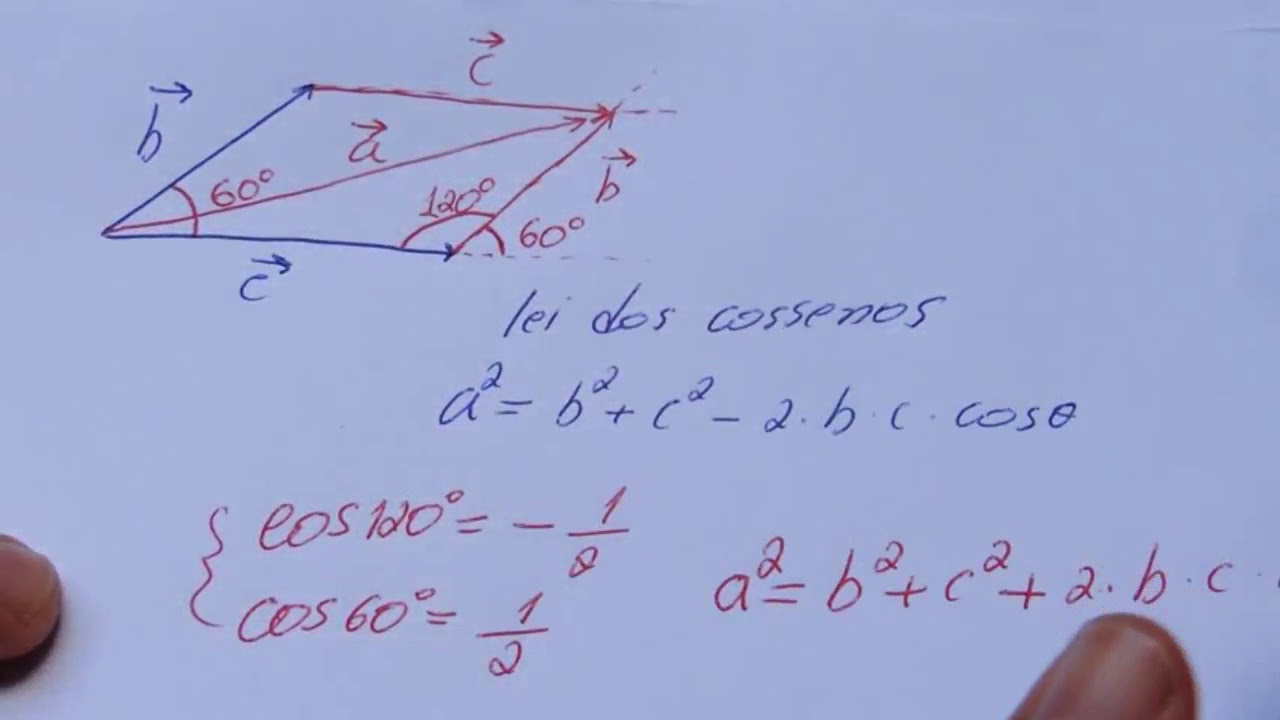 c⃗
b⃗
a⃗
60°
120°
b⃗
60°
c⃗
lei dos cossenos
a² = b² + c² - 2 · b · c · cosθ
{ cos120° = - 1/2
cos60° = 1/2
a² = b² + c² + 2 · b · c ·